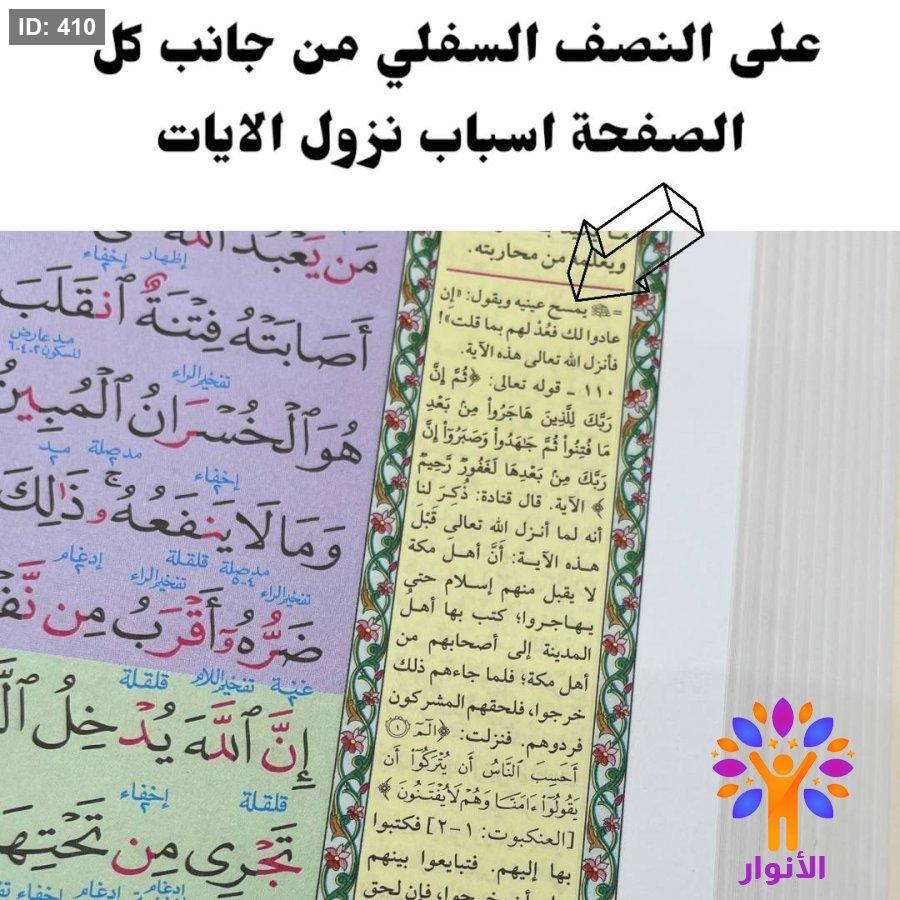 ID: 410
على النصف السفلي من جانب كل
الصفحة اسباب نزول الايات
ويعلمه من محاربته.
=ﷺ يمسح عينيه ويقول: «إن
عادوا لك فعُدْ لهم بما قلت»!
فأنزل الله تعالى هذه الآية.
١١٠ - قوله تعالى: ﴿ثُمَّ إِنَّ
رَبَّكَ لِلَّذِينَ هَاجَرُواْ مِنۢ بَعْدِ
مَا فُتِنُواْ ثُمَّ جَٰهَدُواْ وَصَبَرُوٓاْ إِنَّ
رَبَّكَ مِنۢ بَعْدِهَا لَغَفُورٌ رَّحِيمٌ
﴾ الآية. قال قتادة: ذُكِرَ لنا
أنه لما أنزل الله تعالى قَبْلَ
هذه الآية: أَنَّ أهل مكة
لا يقبل منهم إسلام حتى
يهاجروا؛ كتب بها أهلُ
المدينة إلى أصحابهم من
أهل مكة؛ فلما جاءهم ذلك
خرجوا، فلحقهم المشركون
فردوهم. فنزلت: ﴿الٓمٓ ١
أَحَسِبَ ٱلنَّاسُ أَن يُتْرَكُوٓاْ أَن
يَقُولُوٓاْ ءَامَنَّا وَهُمْ لَا يُفْتَنُونَ﴾
[العنكبوت: ١-٢] فكتبوا
بها إليهم. فتبايعوا بينهم
مَن يَعْبُدُ ٱللَّهَ
إظهار إخفاء
أَصَابَتْهُ فِتْنَةٌ ٱنقَلَبَ
مد عارض للسكون ٢-٤-٦
تفخيم الراء
هُوَ ٱلْخُسْرَانُ ٱلْمُبِينُ
مد صلة ٢ مد ٢
إخفاء
وَمَا لَا يَنفَعُهُۥ ۚ ذَٰلِكَ
مد صلة ٤-٥ قلقلة إدغام
تفخيم الراء تفخيم الراء
ضَرُّهُۥٓ أَقْرَبُ مِن
غنة ٢ تفخيم اللام قلقلة
إِنَّ ٱللَّهَ يُدْخِلُ
قلقلة إخفاء ٢
تَجْرِى مِن تَحْتِهَا
الأنوار